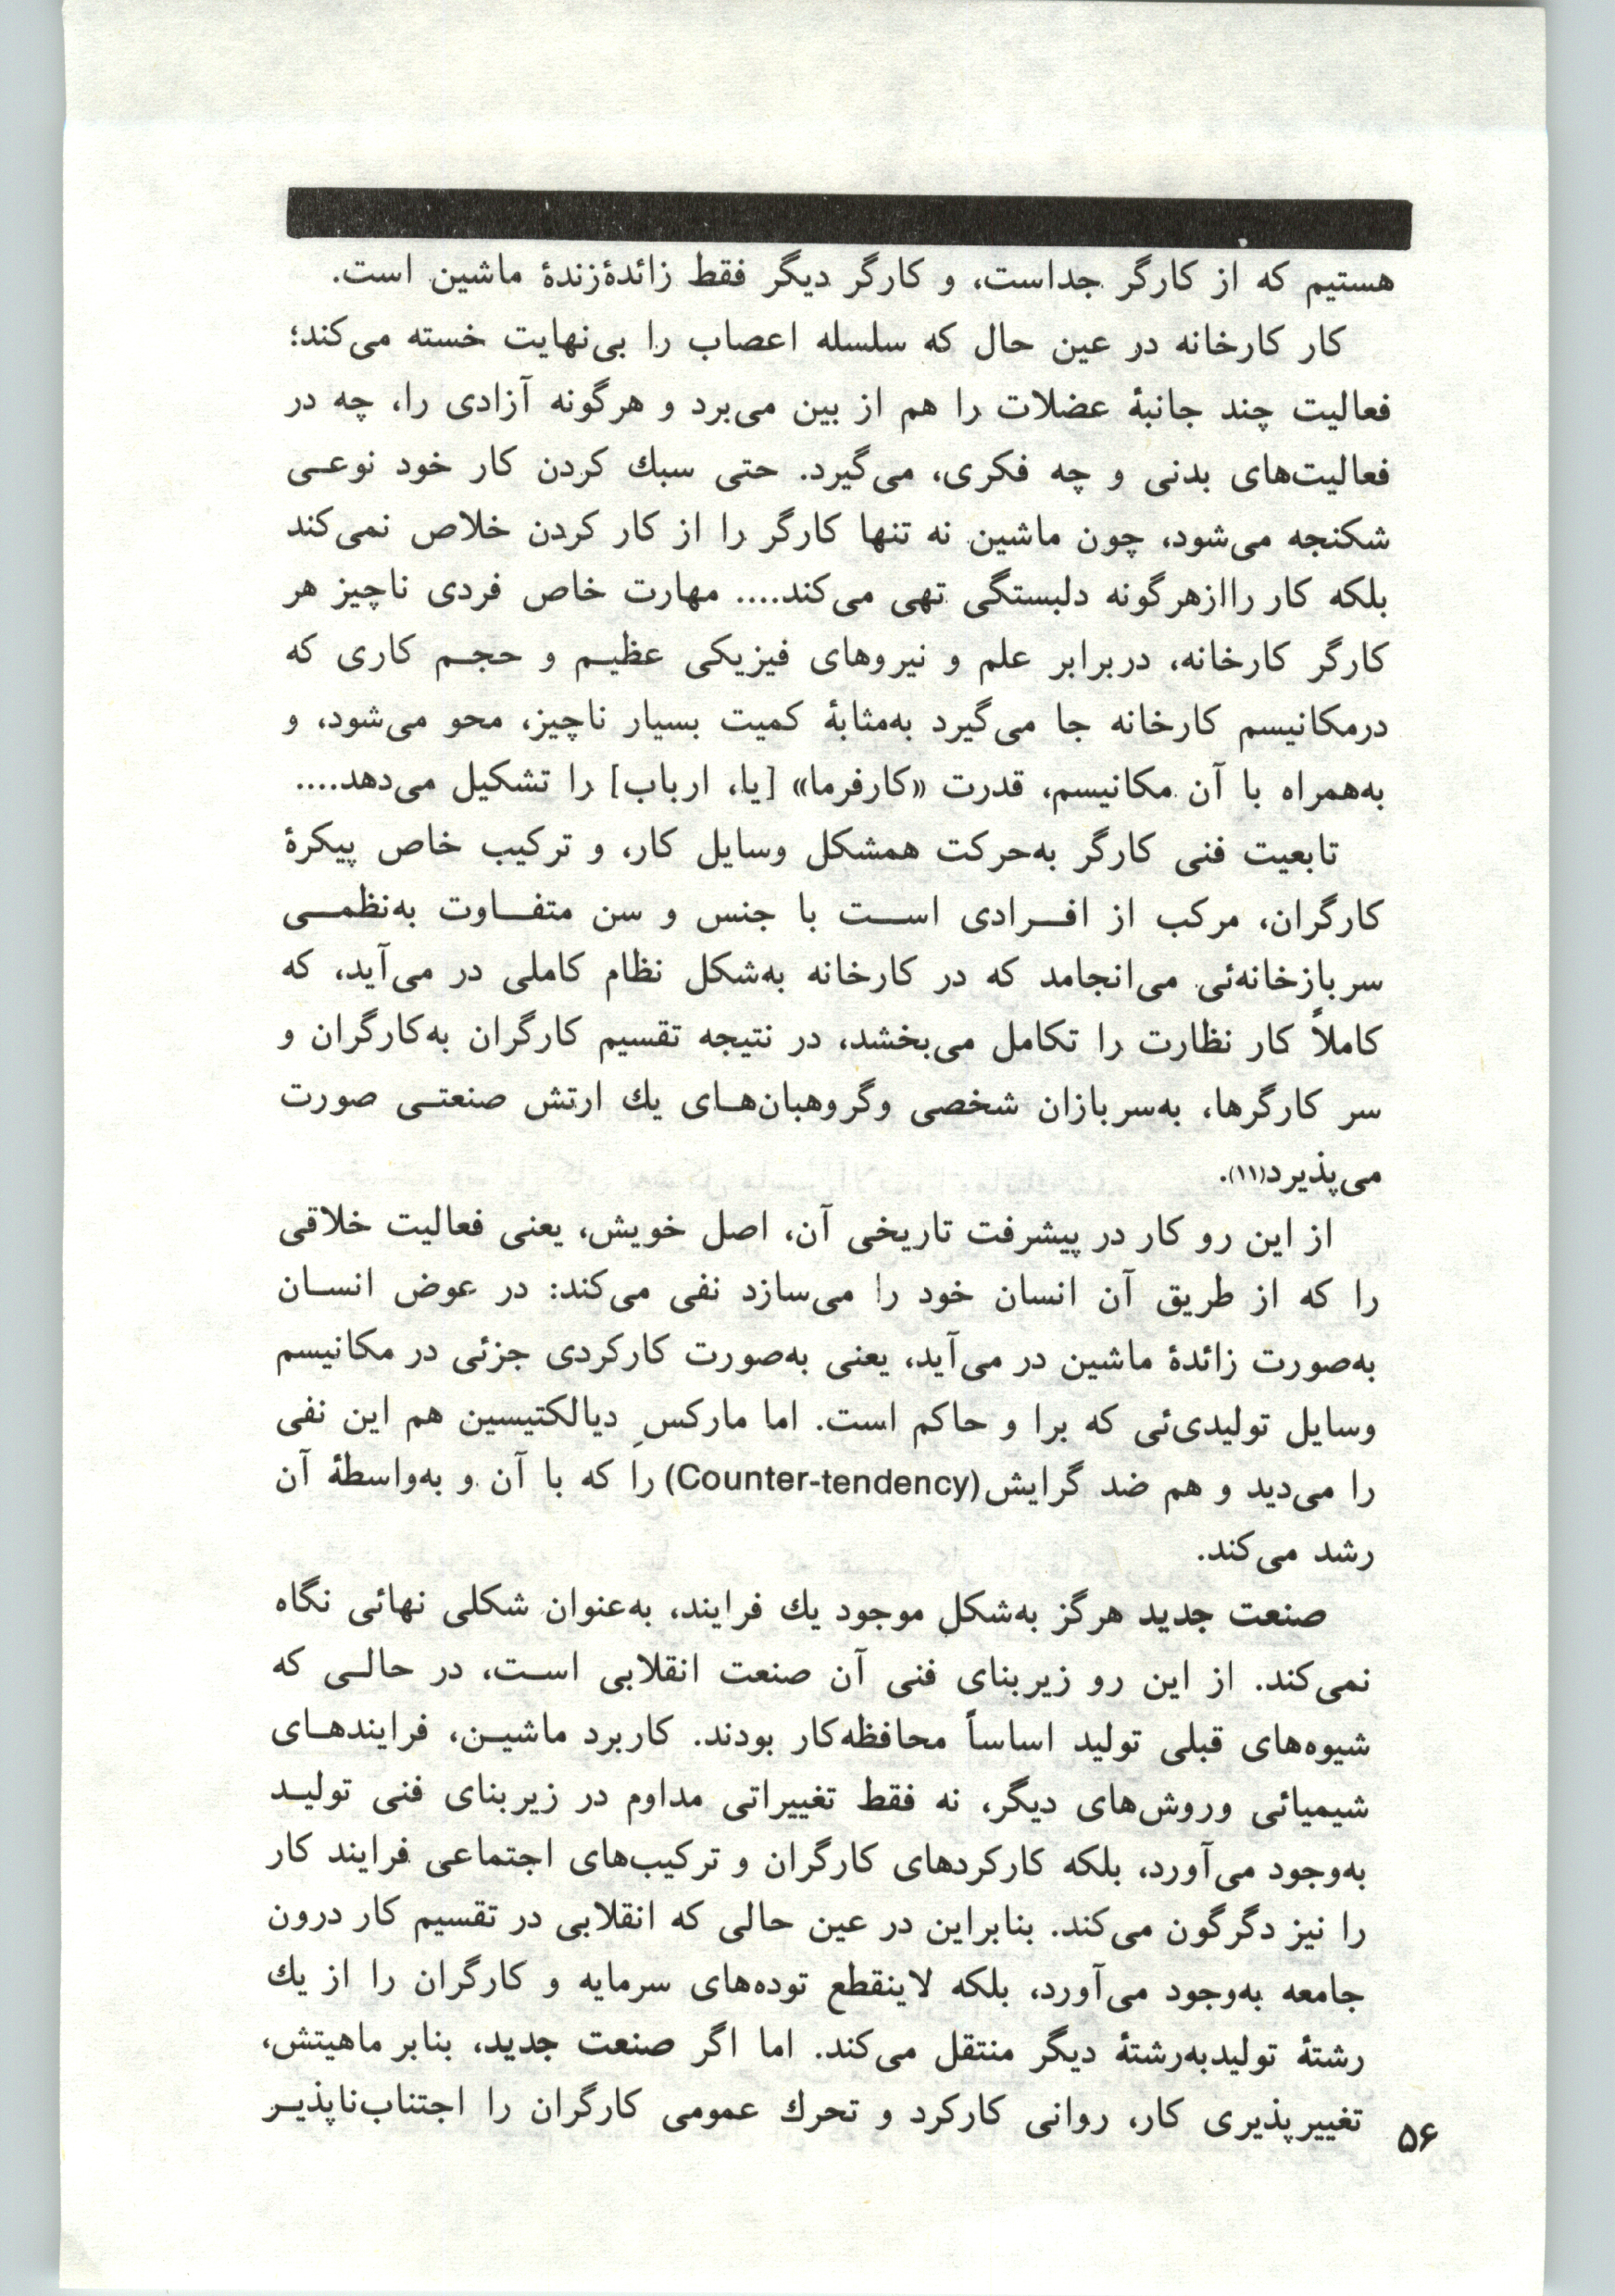 هستیم که از کارگر جداست، و کارگر دیگر فقط زائدهٔزندهٔ ماشین است.
کار کارخانه در عین حال که سلسله اعصاب را بی‌نهایت خسته می‌کند؛
فعالیت چند جانبهٔ عضلات را هم از بین می‌برد و هرگونه آزادی را، چه در
فعالیت‌های بدنی و چه فکری، می‌گیرد. حتی سبك کردن کار خود نوعـی
شکنجه می‌شود، چون ماشین نه تنها کارگر را از کار کردن خلاص نمی‌کند
بلکه کار راازهرگونه دلبستگی تهی می‌کند.... مهارت خاص فردی ناچیز هر
کارگر کارخانه، دربرابر علم و نیروهای فیزیکی عظیـم و حجـم کاری که
درمکانیسم کارخانه جا می‌گیرد به‌مثابهٔ کمیت بسیار ناچیز، محو می‌شود، و
به‌همراه با آن مکانیسم، قدرت «کارفرما» [یا، ارباب] را تشکیل می‌دهد....
تابعیت فنی کارگر به‌حرکت همشکل وسایل کار، و ترکیب خاص پیکرهٔ
کارگران، مرکب از افـرادی اسـت با جنس و سن متفـاوت به‌نظمـی
سربازخانه‌ئی می‌انجامد که در کارخانه به‌شکل نظام کاملی در می‌آید، که
کاملاً کار نظارت را تکامل می‌بخشد، در نتیجه تقسیم کارگران به‌کارگران و
سر کارگرها، به‌سربازان شخصی وگروهبان‌هـای یك ارتش صنعتـی صورت
می‌پذیرد(۱۱).
از این رو کار در پیشرفت تاریخی آن، اصل خویش، یعنی فعالیت خلاقی
را که از طریق آن انسان خود را می‌سازد نفی می‌کند: در عوض انسـان
به‌صورت زائدهٔ ماشین در می‌آید، یعنی به‌صورت کارکردی جزئی در مکانیسم
وسایل تولیدی‌ئی که برا و حاکم است. اما مارکسِ دیالکتیسین هم این نفی
را می‌دید و هم ضد گرایش(Counter-tendency) را که با آن و به‌واسطهٔ آن
رشد می‌کند.
صنعت جدید هرگز به‌شکل موجود یك فرایند، به‌عنوان شکلی نهائی نگاه
نمی‌کند. از این رو زیربنای فنی آن صنعت انقلابی اسـت، در حالـی که
شیوه‌های قبلی تولید اساساً محافظه‌کار بودند. کاربرد ماشیـن، فرایندهـای
شیمیائی وروش‌های دیگر، نه فقط تغییراتی مداوم در زیربنای فنی تولیـد
به‌وجود می‌آورد، بلکه کارکردهای کارگران و ترکیب‌های اجتماعی فرایند کار
را نیز دگرگون می‌کند. بنابراین در عین حالی که انقلابی در تقسیم کار درون
جامعه به‌وجود می‌آورد، بلکه لاینقطع توده‌های سرمایه و کارگران را از یك
رشتهٔ تولیدبه‌رشتهٔ دیگر منتقل می‌کند. اما اگر صنعت جدید، بنابر ماهیتش،
تغییرپذیری کار، روانی کارکرد و تحرك عمومی کارگران را اجتناب‌ناپذیـر
۵۶